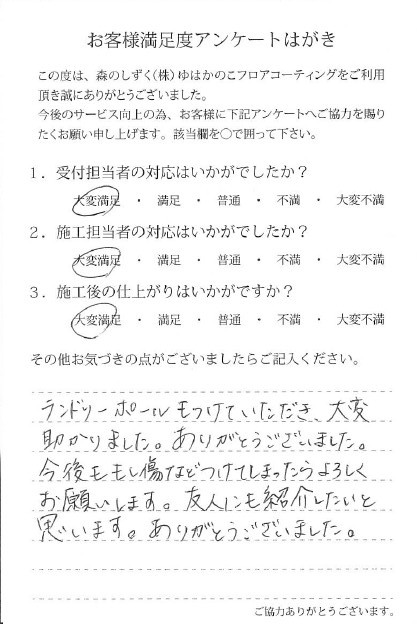 お客様満足度アンケートはがき
この度は、森のしずく(株)ゆはかのこフロアコーティングをご利用
頂き誠にありがとうございました。
今後のサービス向上の為、お客様に下記アンケートへご協力を賜り
たくお願い申し上げます。該当欄を○で囲って下さい。
1．受付担当者の対応はいかがでしたか？
大変満足 ・ 満足 ・ 普通 ・ 不満 ・ 大変不満
2．施工担当者の対応はいかがでしたか？
大変満足 ・ 満足 ・ 普通 ・ 不満 ・ 大変不満
3．施工後の仕上がりはいかがですか？
大変満足 ・ 満足 ・ 普通 ・ 不満 ・ 大変不満
その他お気づきの点がございましたらご記入ください。
ランドリーポールもつけていただき、大変
助かりました。ありがとうございました。
今後ももし傷などつけてしまったらよろしく
お願いします。友人にも紹介したいと
思います。ありがとうございました。
ご協力ありがとうございます。